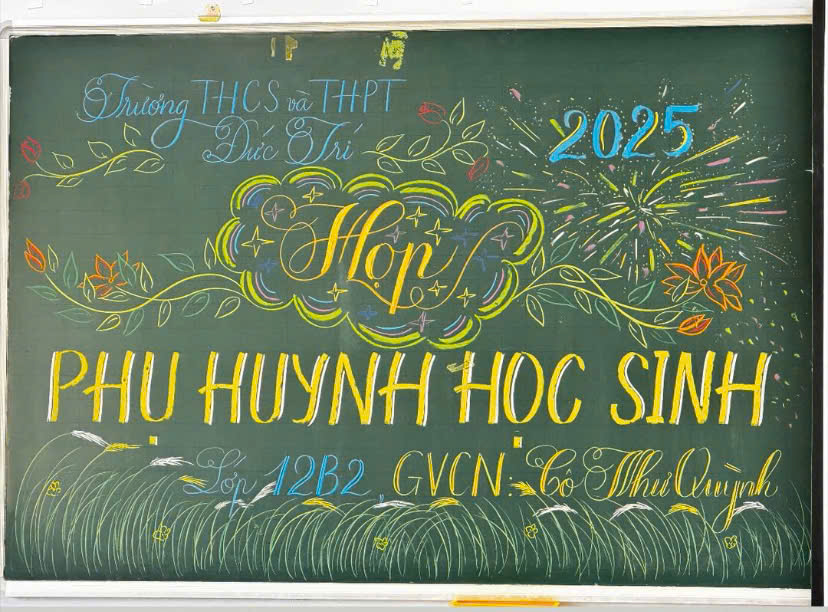 Trường THCS và THPT
Đức Trí
2025
Họp
PHỤ HUYNH HỌC SINH
Lớp 12B2, GVCN: Cô Như Quỳnh